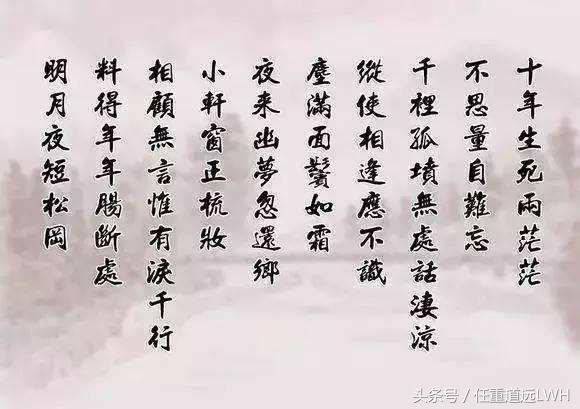 十年生死兩茫茫
不思量自難忘
千裡孤墳無處話淒涼
縱使相逢應不識
塵滿面鬢如霜
夜来幽夢忽還鄉
小軒窗正梳妝
相顧無言惟有淚千行
料得年年腸斷處
明月夜短松岡
头条号 / 任重道远LWH